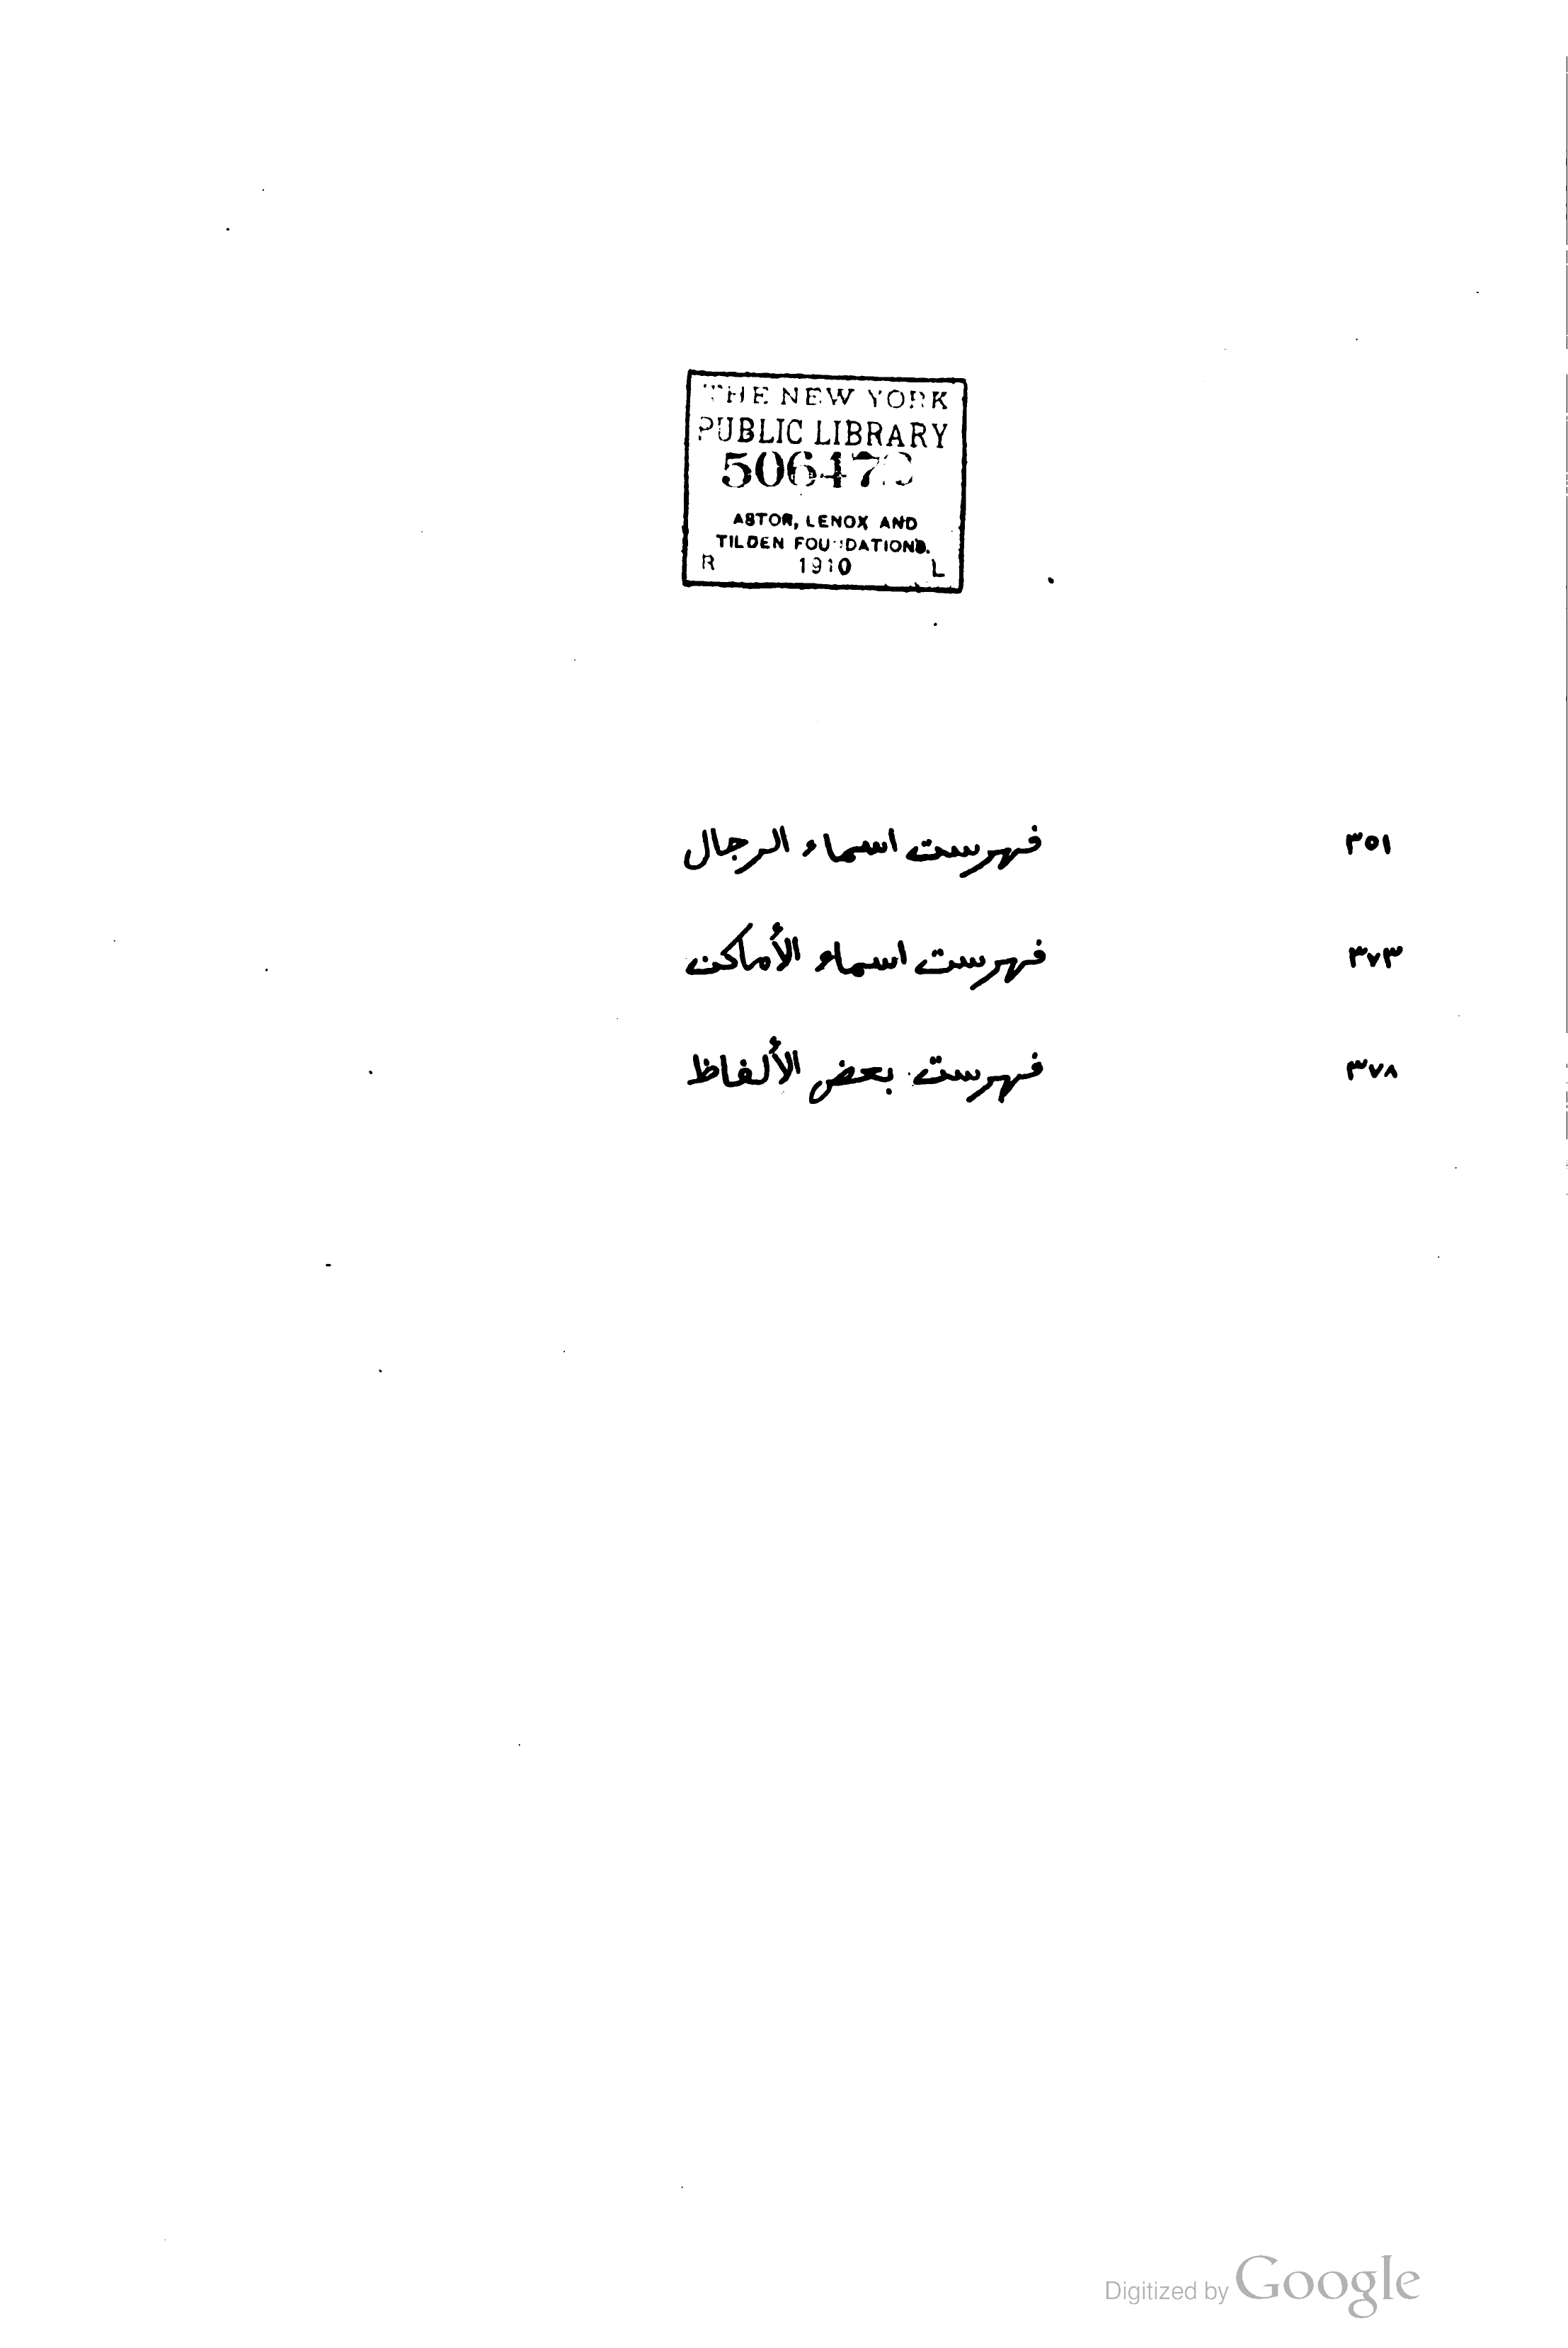 THE NEW YORK
PUBLIC LIBRARY
ASTOR, LENOX AND
TILDEN FOUNDATIONS.
R 1910 L
٣٥١ فهرست اسماء الرجال
٣٧٣ فهرست اسماء الأماكن
٣٧٨ فهرست بعض الألفاظ
Digitized by Google